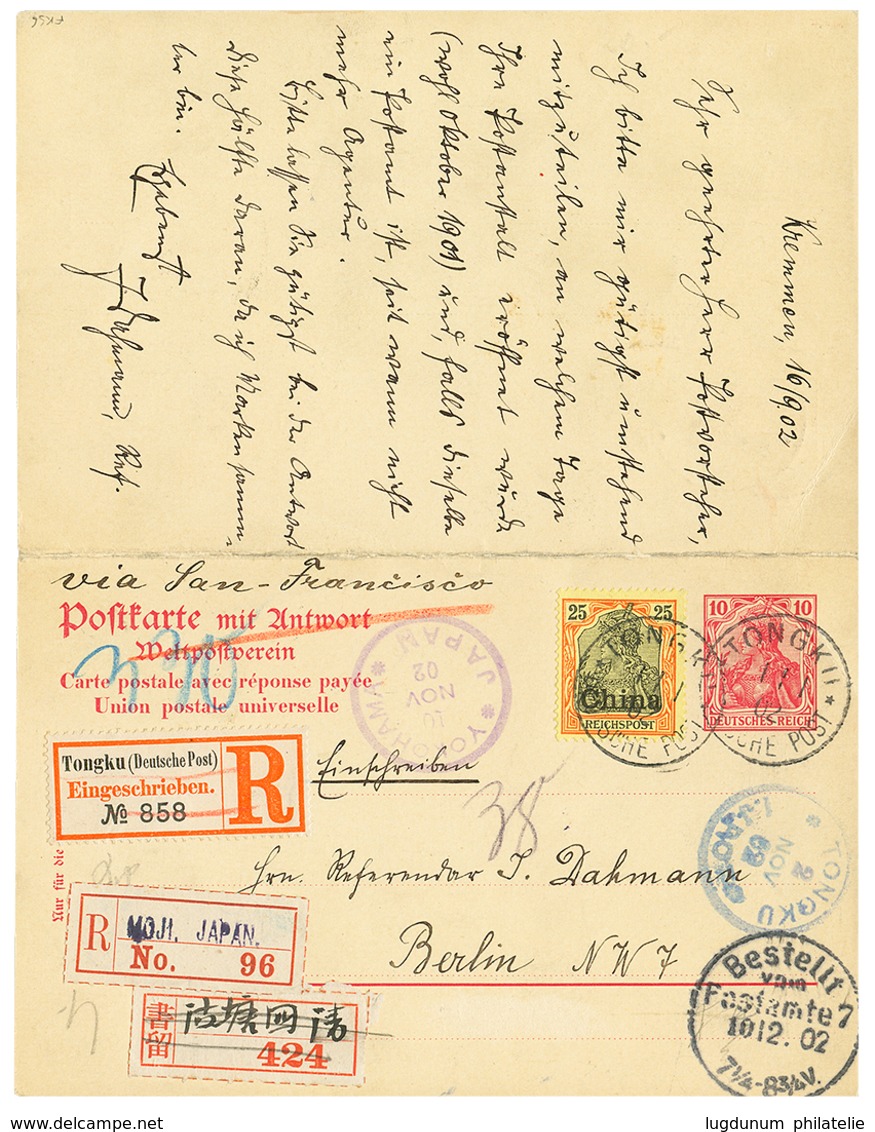 Kremmen, 16/9.02
Sehr geehrter Herr Postvorsteher,
Ich bitte mir gütigst umstehend
mitzuteilen, an welchem Tage
Ihre Postanstalt eröffnet wurde
(wohl Oktober 1901) und, falls dieselbe
ein Postamt ist, seit wann nicht
mehr Agentur.
Bitte lassen Sie gütigst bei der Antwort
diese Hälfte daran, da ich Marken samm-
ler bin. Ergebenst
J. Dahmann, Ref.
via San-Francisco
Postkarte mit Antwort
Weltpostverein
Carte postale avec réponse payée
Union postale universelle
25 25
China
REICHSPOST
10 10
DEUTSCHES REICH
*TONGKU*
DEUTSCHE POST
YOKOHAMA
10
NOV
02
JAPAN
Tongku (Deutsche Post)
Eingeschrieben.
№ 858
R
Einschreiben
38
Hrn. Referendar J. Dahmann
Berlin NW 7
Nur für die
TONGKU
2
NOV
02
I.J.P.O.
R
MOJI. JAPAN.
No. 96
書留
424
Bestellt
vom
Postamte 7
10 12. 02
7¼-8¾V.
lugdunum philatelie